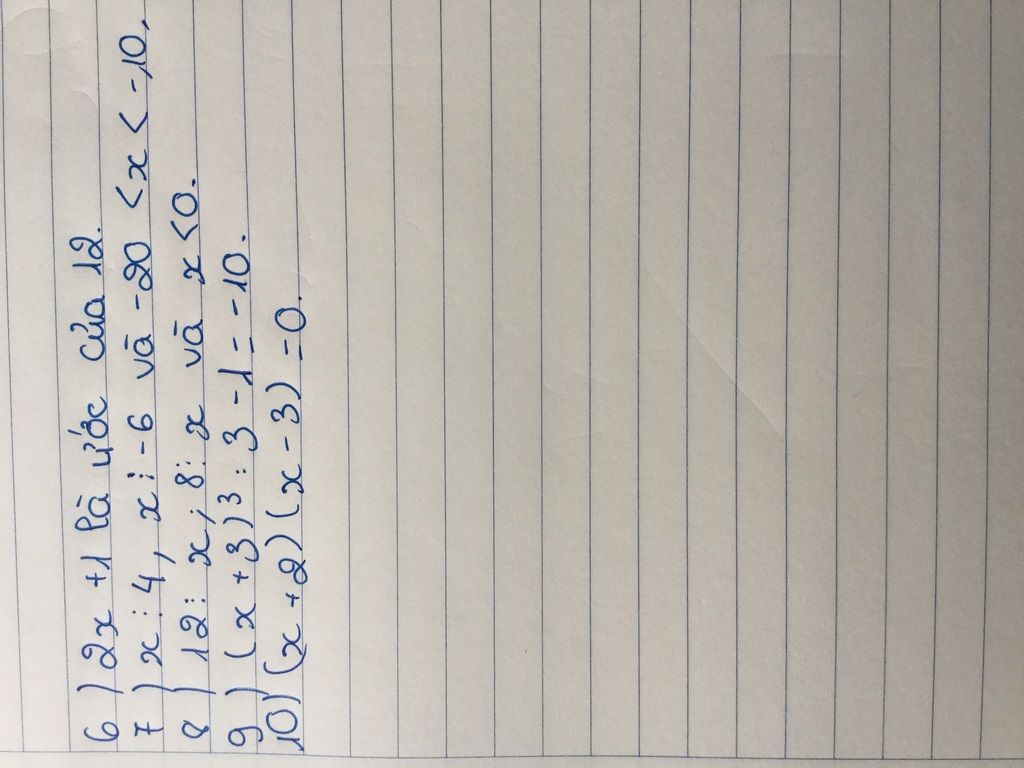 6) 2x + 1 là ước của 12.
7) x ⋮ 4, x ⋮ -6 và -20 < x < -10,
8) 12 ⋮ x; 8 ⋮ x và x < 0.
9) (x + 3)³ : 3 - 1 = -10.
10) (x + 2) (x - 3) = 0.